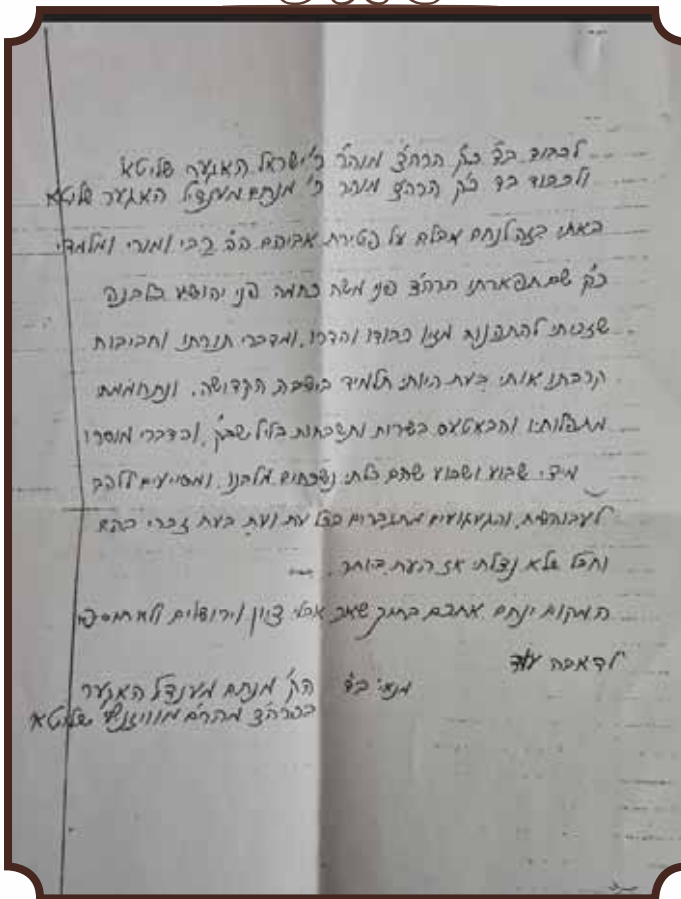 לכבוד בד כק הרהצ מוהר ר' ישראל האגער שליטא
ולכבוד בד כק הרהצ מוהר ר' מנחם מענדיל האגער שליטא
באתי בזה לנחם אבלם על פטירת אביהם הק רבי ומורי ומלמדי
כק שם תפארתו הרהצ פני משה כחמה פני יהושע כלבנה
שזכיתי להתפנות מזיו כבודו והדרו, ומדברי תורתו וחביבות
קרבתו אותי בעת היותי תלמיד בישיבה הקדושה. ונתרוממת
מתפלותיו והבאטעס בשירות ותשבחות בליל שבק, ודברי מוסרו
מידי שבוע ושבוע שהם בלתי נשכחים מלבנו, ומסייעים ללהב
לעבוהשת, והגעגועים מתגברים בכל עת ועת בעת זכרי בהם
וחבל שלא נצלתי אז העת ביותר.
המקום ינחם אתכם בתוך שאר אבלי ציון וירושלים ולא תוסיפו
לדאבה עוד
מנאי בד הק' מנחם מענדל האגער
בהרהצ מהרם מוויזניץ שליטא